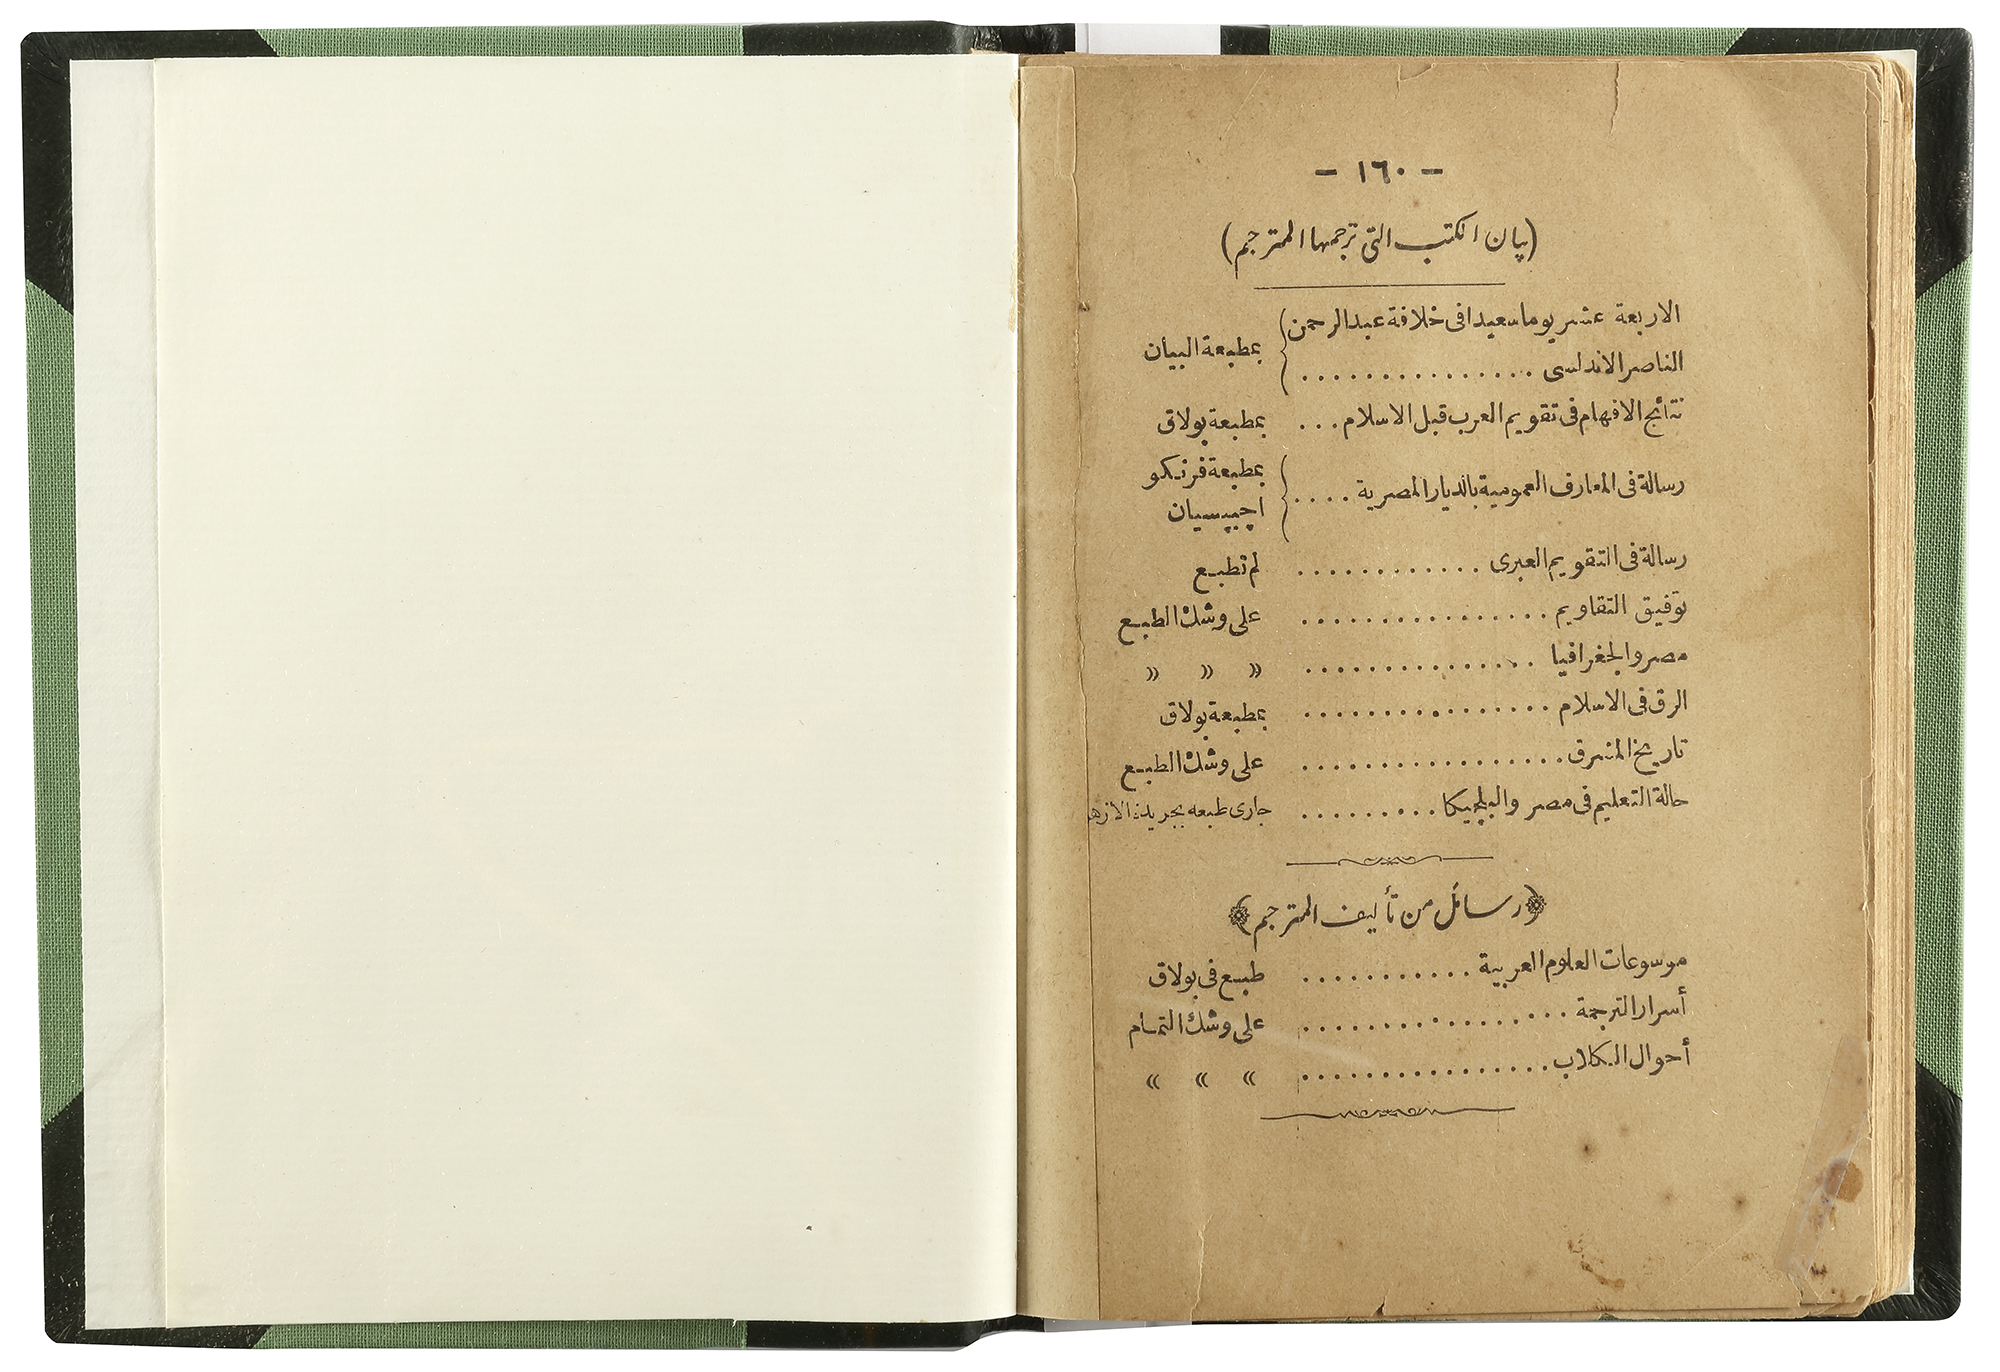 - ١٦٠ -
(بيان الكتب التى ترجمها المترجم)
الاربعة عشر يوما سعيدا فى خلافة عبدالرحمن
الناصر الاندلسى ............... بمطبعة البيان
نتائج الافهام فى تقويم العرب قبل الاسلام ... بمطبعة بولاق
رسالة فى المعارف العمومية بالديار المصرية .... بمطبعة فرنكو
اجيبسيان
رسالة فى التقويم العبرى ............ لم تطبع
توفيق التقاويم ................ على وشك الطبع
مصر والجغرافيا ............... » » »
الرق فى الاسلام ................ بمطبعة بولاق
تاريخ المشرق ................. على وشك الطبع
حالة التعليم فى مصر والبلجيكا ......... جارى طبعه بجريدة الازهر
﴿رسائل من تأليف المترجم﴾
موسوعات العلوم العربية ........... طبع فى بولاق
أسرار الترجمة ................. على وشك التمام
أحوال الكلاب ................ » » »